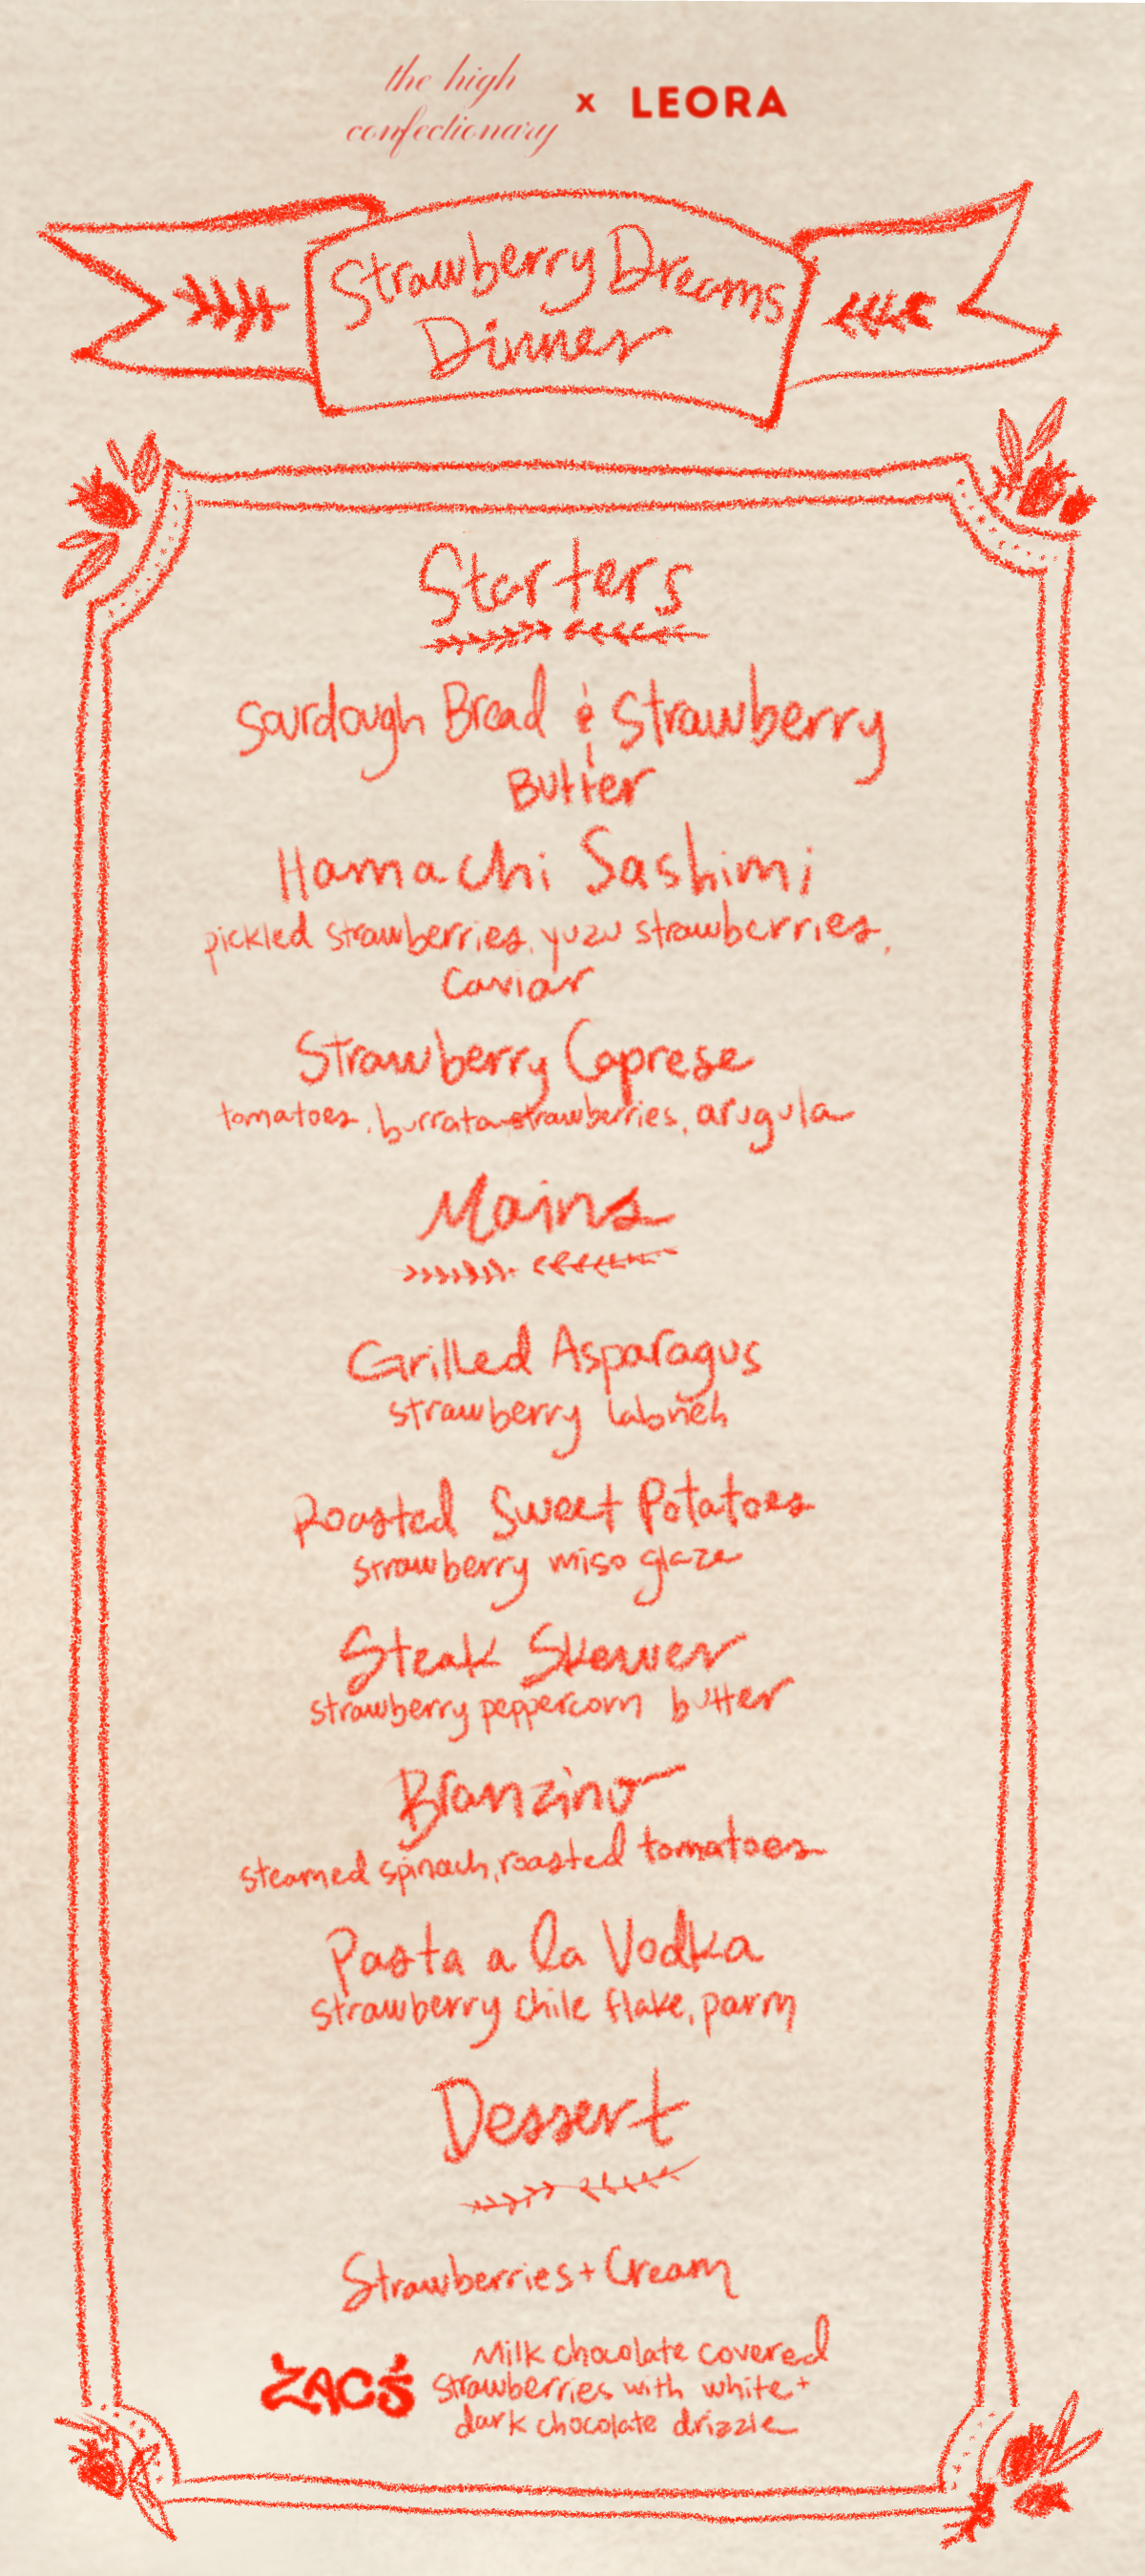 the high
confectionary
x LEORA
Strawberry Dreams
Dinner
Starters
Sourdough Bread & Strawberry
Butter
Hamachi Sashimi
pickled strawberries, yuzu strawberries,
Caviar
Strawberry Caprese
tomatoes, burrata strawberries, arugula
Mains
Grilled Asparagus
strawberry labneh
Roasted Sweet Potatoes
strawberry miso glaze
Steak Skewer
strawberry peppercorn butter
Branzino
steamed spinach, roasted tomatoes
Pasta a la Vodka
strawberry chile flake, parm
Dessert
Strawberries + Cream
ZACS
Milk chocolate covered
strawberries with white +
dark chocolate drizzle